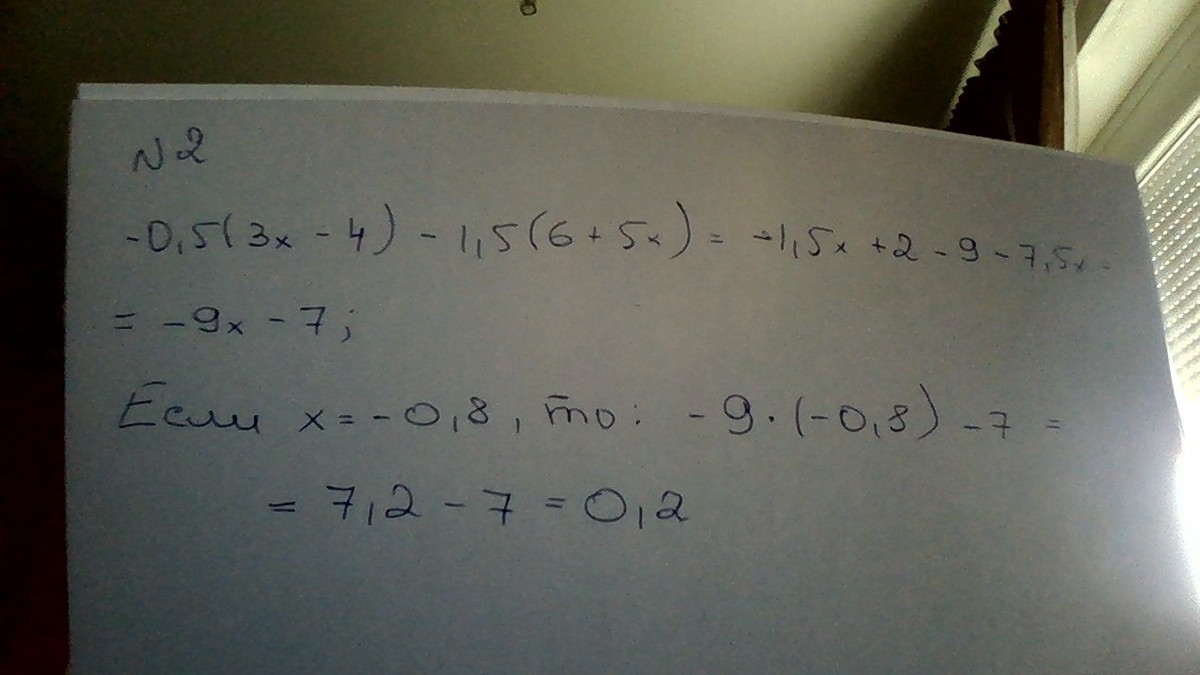 N2
-0,5(3x - 4) - 1,5(6 + 5x) = -1,5x + 2 - 9 - 7,5x =
= -9x - 7;
Если x = -0,8, то: -9·(-0,8) - 7 =
= 7,2 - 7 = 0,2